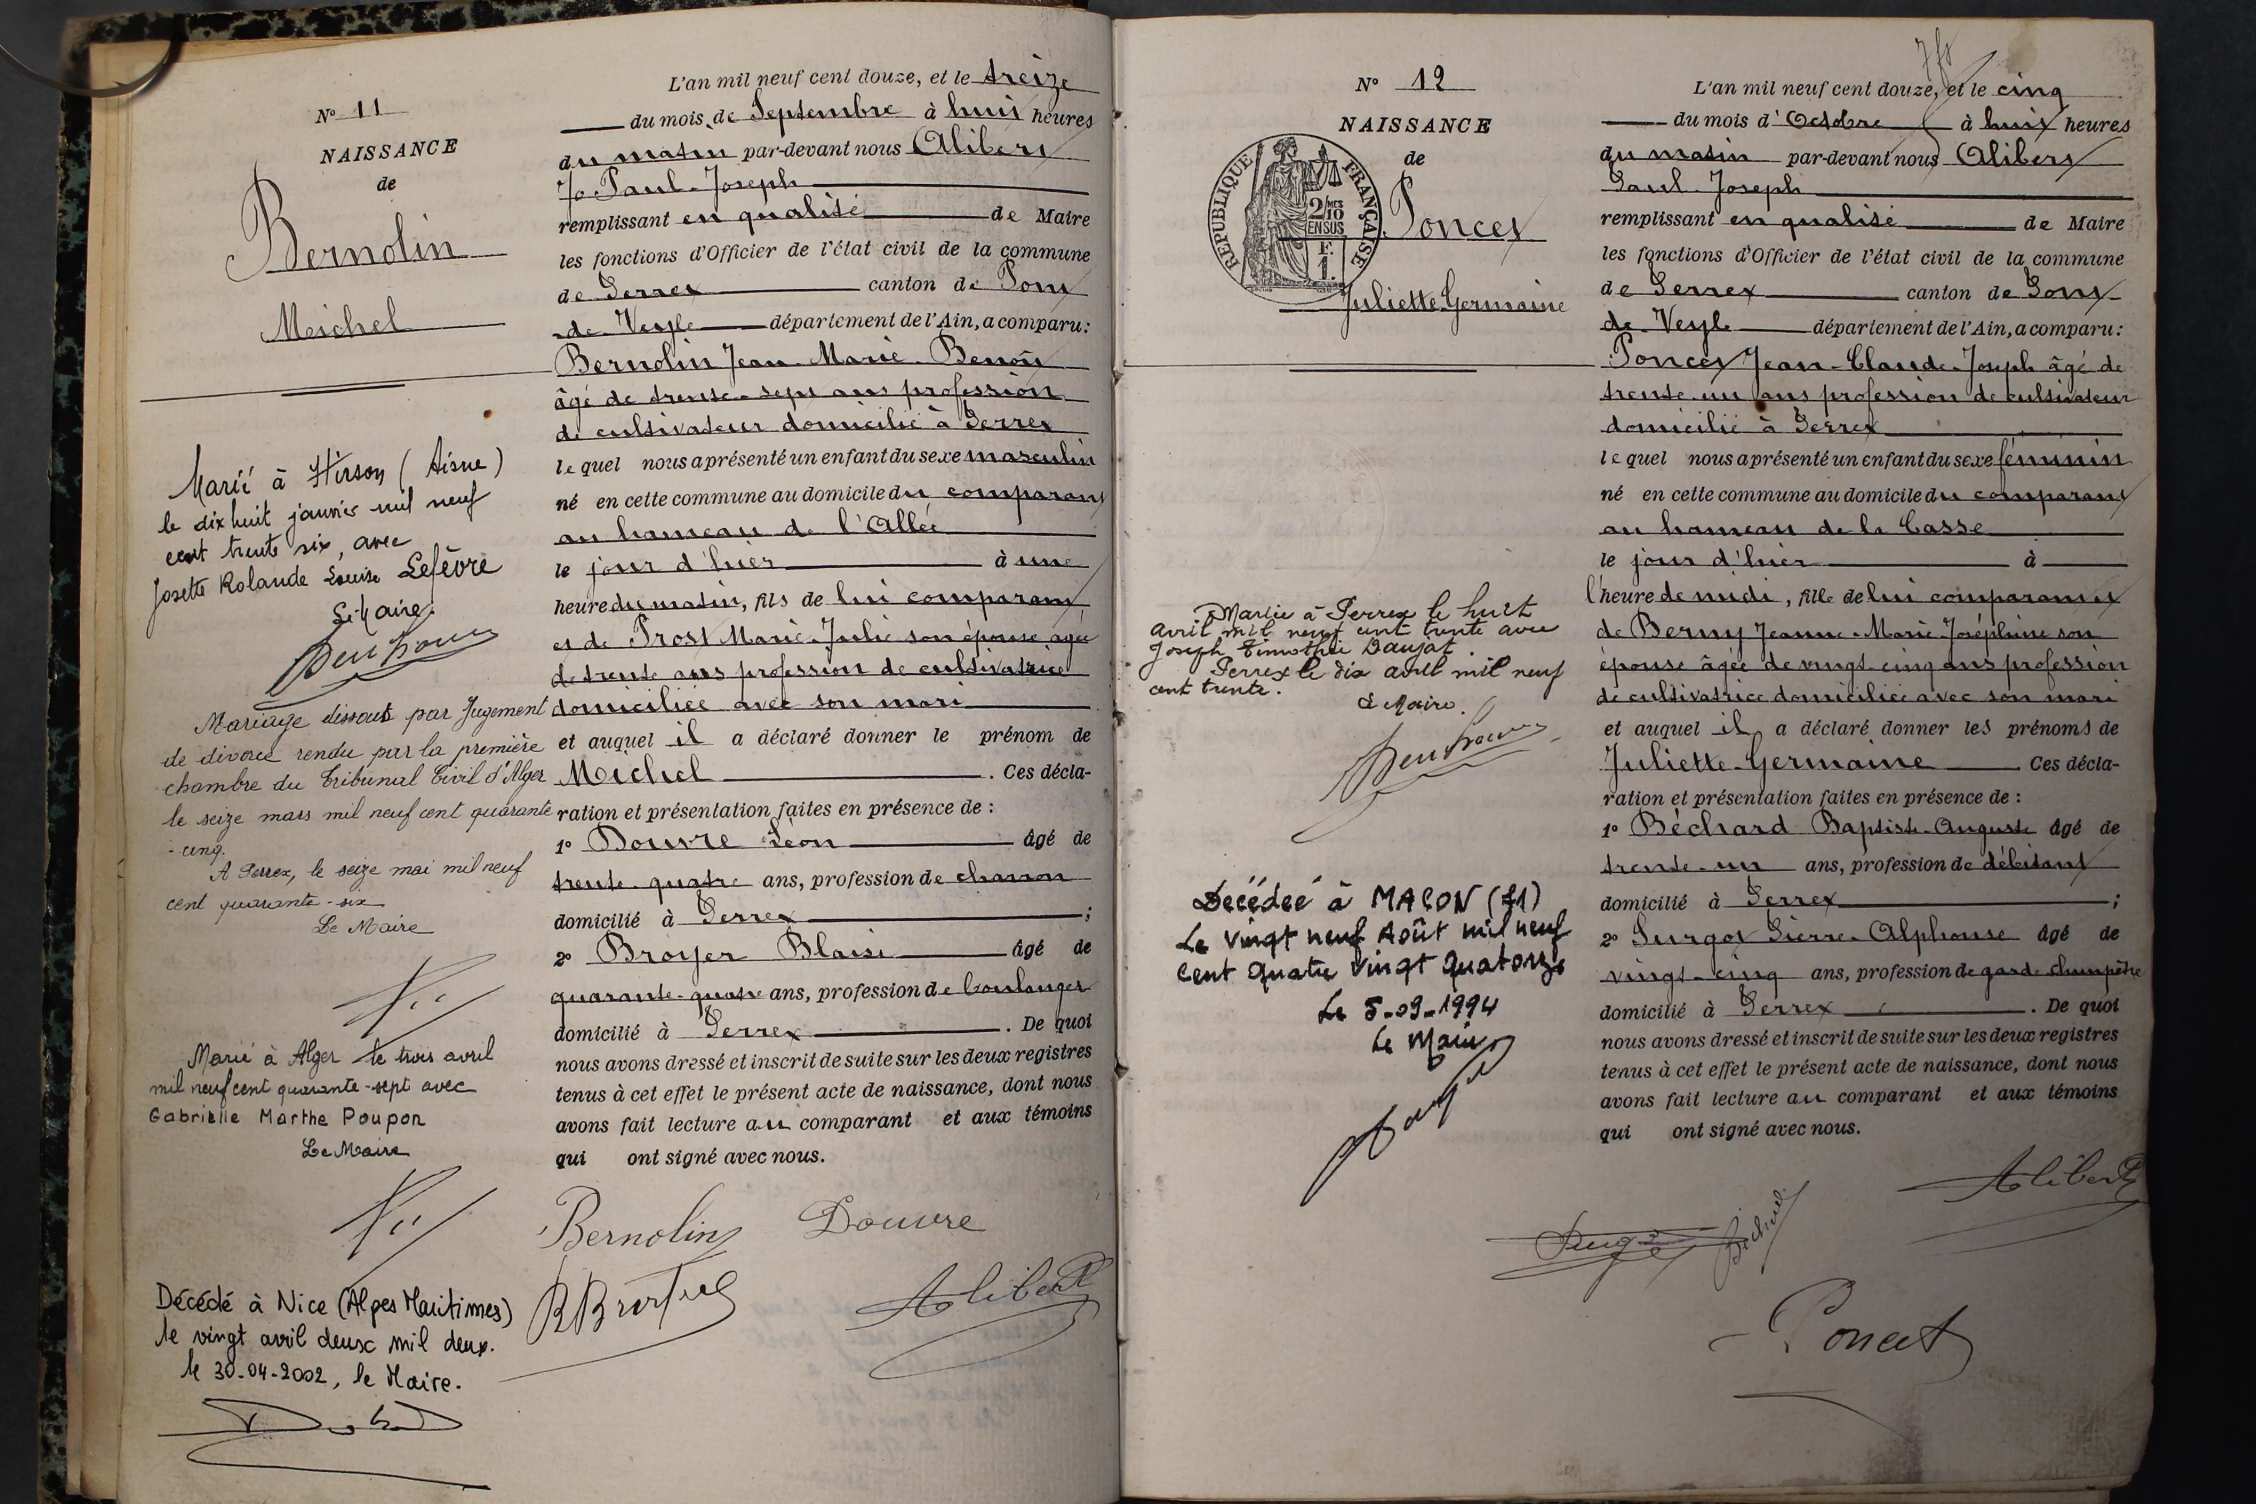 N° 11
NAISSANCE
de
Bernolin
Michel
Marié à Hirson (Aisne)
le dix huit janvier mil neuf
cent trente six, avec
Josette Rolande Louise Lefèvre
Le Maire.
Mariage dissout par Jugement
de divorce rendu par la première
chambre du Tribunal Civil d'Alger
le seize mars mil neuf cent quarante
-cinq.
A Perrex, le seize mai mil neuf
cent quarante-six
Le Maire
Marié à Alger le trois avril
mil neuf cent quarante-sept avec
Gabrielle Marthe Poupon
Le Maire
Décédé à Nice (Alpes Maritimes)
le vingt avril deux mil deux.
le 30-04-2002, le Maire.
L'an mil neuf cent douze, et le treize
du mois de Septembre à huit heures
du matin par-devant nous Alibert
Paul-Joseph
remplissant en qualité de Maire
les fonctions d'Officier de l'état civil de la commune
de Perrex canton de Pont
de Veyle département de l'Ain, a comparu:
Bernolin Jean Marie Benoît
âgé de trente-sept ans profession
de cultivateur domicilié à Perrex
lequel nous a présenté un enfant du sexe masculin
né en cette commune au domicile du comparant
au hameau de l'Allée
le jour d'hier à une
heure du matin, fils de lui comparant
et de Prost Marie-Julie son épouse agée
de trente ans profession de cultivatrice
domiciliée avec son mari
et auquel il a déclaré donner le prénom de
Michel . Ces décla-
ration et présentation faites en présence de :
1° Douvre Léon âgé de
trente-quatre ans, profession de charron
domicilié à Perrex ;
2° Broyer Blaise âgé de
quarante-quatre ans, profession de boulanger
domicilié à Perrex . De quoi
nous avons dressé et inscrit de suite sur les deux registres
tenus à cet effet le présent acte de naissance, dont nous
avons fait lecture au comparant et aux témoins
qui ont signé avec nous.
Bernolin Douvre
Alibert
N° 12
NAISSANCE
de
REPUBLIQUE FRANÇAISE
2/10 MES
EN SUS
F.
1.
Poncet
Juliette Germaine
Mariée à Perrex le huit
avril mil neuf cent trente avec
Joseph Timothée Daujat.
Perrex le dix avril mil neuf
cent trente.
Le Maire.
Décédée à MACON (71)
Le vingt neuf Août mil neuf
cent quatre vingt quatorze
Le 5-09-1994
Le Maire
L'an mil neuf cent douze, et le cinq
du mois d'Octobre à huit heures
du matin par-devant nous Alibert
Paul-Joseph
remplissant en qualité de Maire
les fonctions d'Officier de l'état civil de la commune
de Perrex canton de Pont
de Veyle département de l'Ain, a comparu:
Poncet Jean-Claude-Joseph âgé de
trente-un ans profession de cultivateur
domicilié à Perrex
lequel nous a présenté un enfant du sexe féminin
né en cette commune au domicile du comparant
au hameau de la Casse
le jour d'hier à
l'heure de midi, fille de lui comparant et
de Berny Jeanne-Marie-Joséphine son
épouse âgée de vingt-cinq ans profession
de cultivatrice domiciliée avec son mari
et auquel il a déclaré donner les prénoms de
Juliette-Germaine Ces décla-
ration et présentation faites en présence de :
1° Béchard Baptiste-Auguste âgé de
trente-un ans, profession de débitant
domicilié à Perrex ;
2° Purgot Pierre-Alphonse âgé de
vingt-cinq ans, profession de garde-champêtre
domicilié à Perrex . De quoi
nous avons dressé et inscrit de suite sur les deux registres
tenus à cet effet le présent acte de naissance, dont nous
avons fait lecture au comparant et aux témoins
qui ont signé avec nous.
Alibert
Poncet